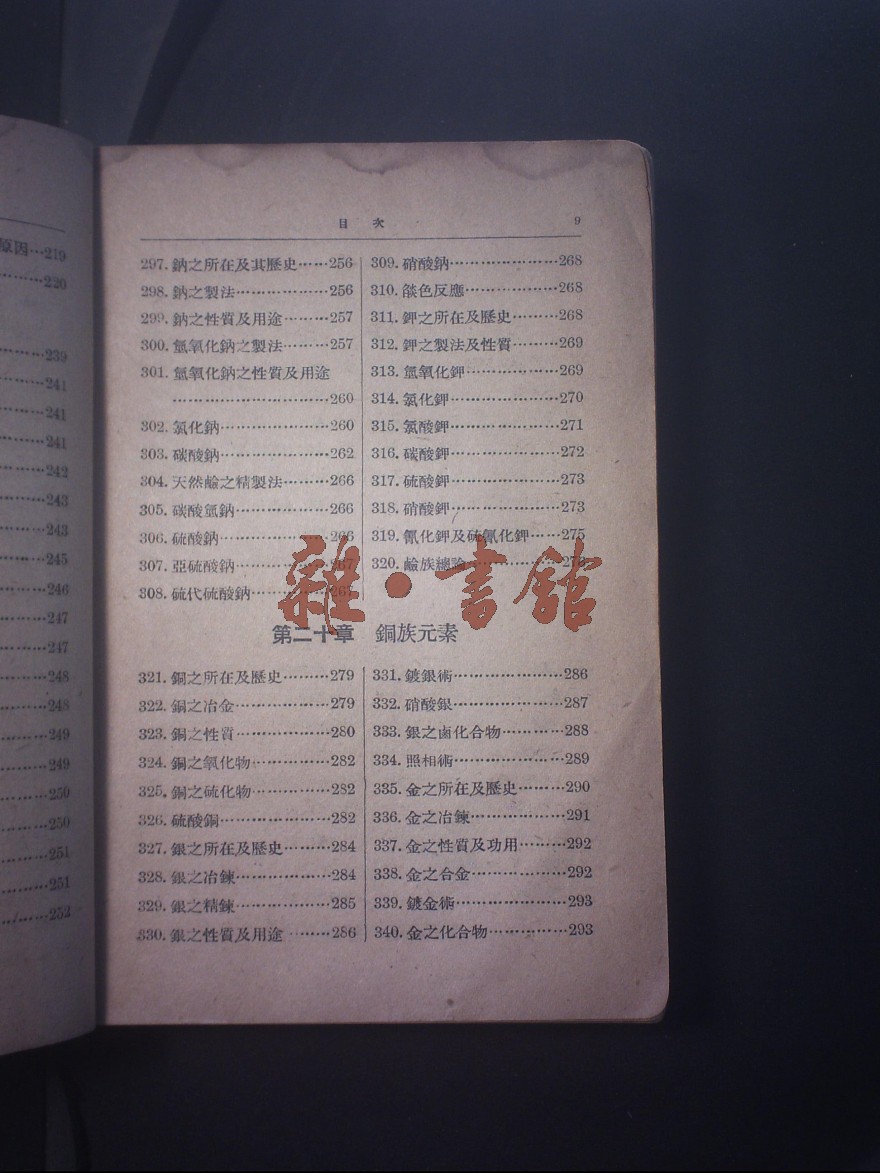 原因…219
……220
……239
……241
……241
……241
……242
……243
……243
……245
……246
……247
……247
……248
……248
……249
……249
……250
……250
……251
……251
……252
目次 9
297. 鈉之所在及其歷史……256
298. 鈉之製法………………256
299. 鈉之性質及用途………257
300. 氫氧化鈉之製法………257
301. 氫氧化鈉之性質及用途
…………………………260
302. 氯化鈉…………………260
303. 碳酸鈉…………………262
304. 天然鹼之精製法………266
305. 碳酸氫鈉………………266
306. 硫酸鈉…………………266
307. 亞硫酸鈉………………267
308. 硫代硫酸鈉……………267
309. 硝酸鈉…………………268
310. 燄色反應………………268
311. 鉀之所在及歷史………268
312. 鉀之製法及性質………269
313. 氫氧化鉀………………269
314. 氯化鉀…………………270
315. 氯酸鉀…………………271
316. 碳酸鉀…………………272
317. 硫酸鉀…………………273
318. 硝酸鉀…………………273
319. 氰化鉀及硫氰化鉀……275
320. 鹼族總論………………276
雜·書館
第二十章 銅族元素
321. 銅之所在及歷史………279
322. 銅之冶金………………279
323. 銅之性質………………280
324. 銅之氧化物……………282
325. 銅之硫化物……………282
326. 硫酸銅…………………282
327. 銀之所在及歷史………284
328. 銀之冶鍊………………284
329. 銀之精鍊………………285
330. 銀之性質及用途………286
331. 鍍銀術…………………286
332. 硝酸銀…………………287
333. 銀之鹵化合物…………288
334. 照相術…………………289
335. 金之所在及歷史………290
336. 金之冶鍊………………291
337. 金之性質及功用………292
338. 金之合金………………292
339. 鍍金術…………………293
340. 金之化合物……………293